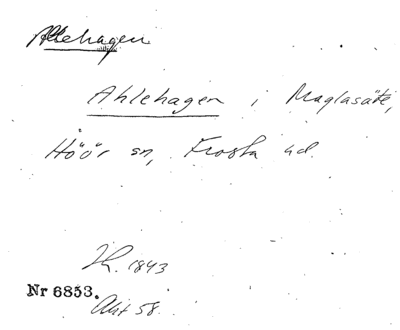 Ahlehagen
Ahlehagen i Maglasäte,
Höör sn, Frosta hd.
1843
Nr 6853. Akt 58.